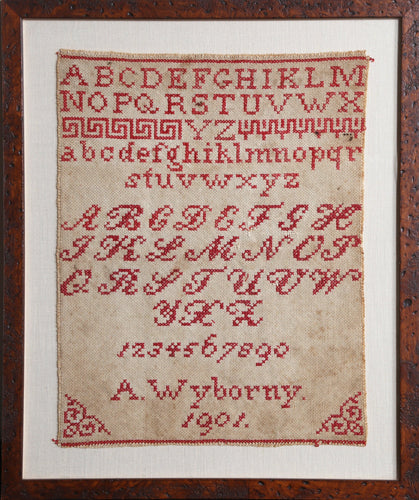 ABCDEFGHIKLM
NOPQRSTUVWX
YZ
abcdefghiklmnopqr
stuvwxyz
ABCDEFGH
IKLMNOP
QRSTUVW
YXZ
1234567890
A. Wyborny.
1901.